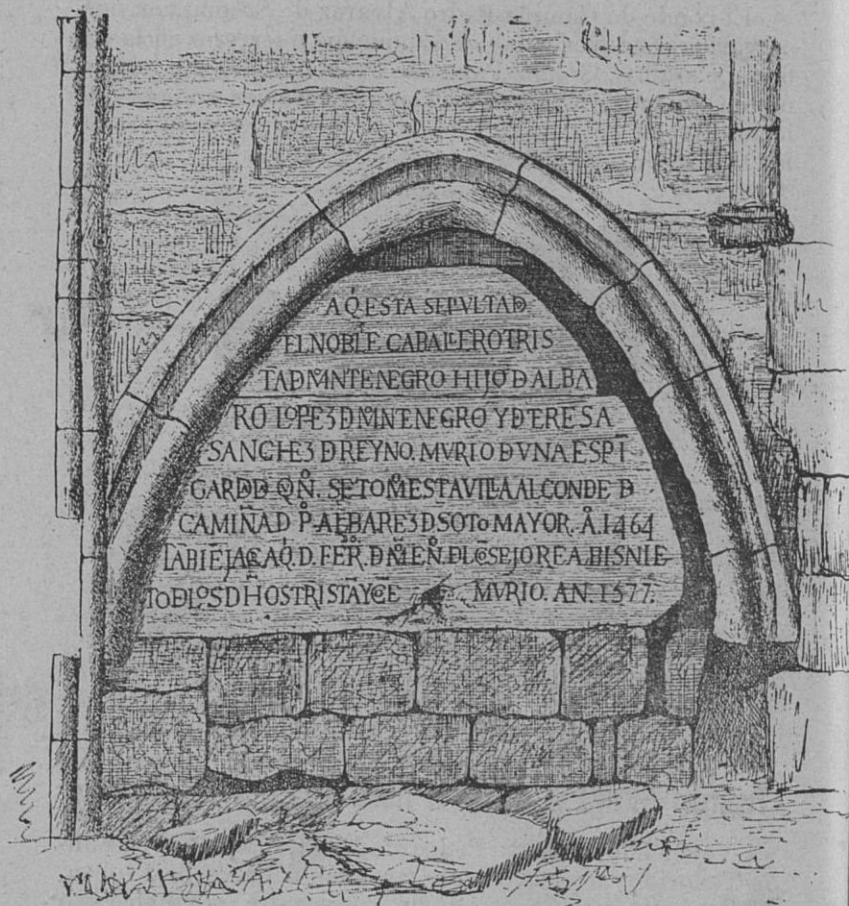 AQ̇ESTA SEPVLTAD
ELNOBLE CABALLEROTRIS
TADMNTENEGRO HIJO D ALBA
RO LOPE3 D MNTENEGRO Y D TERESA
SANCHE3 D REYNO. MVRIO D VNA ESPĪ
GARDD QN̊. SE TOM ESTAVILLA AL CONDE D
CAMIÑA D P̊-ALBARE3 D SOTOMAYOR. Å. 1464
TABIĒ JAC̄AQ̇. D. FER̊. D MEN̊. DL CŌSEJO REA. BISNIE-
TO D LOS D H̄OS TRISTĀ Y MVRIO. AN. 1577.